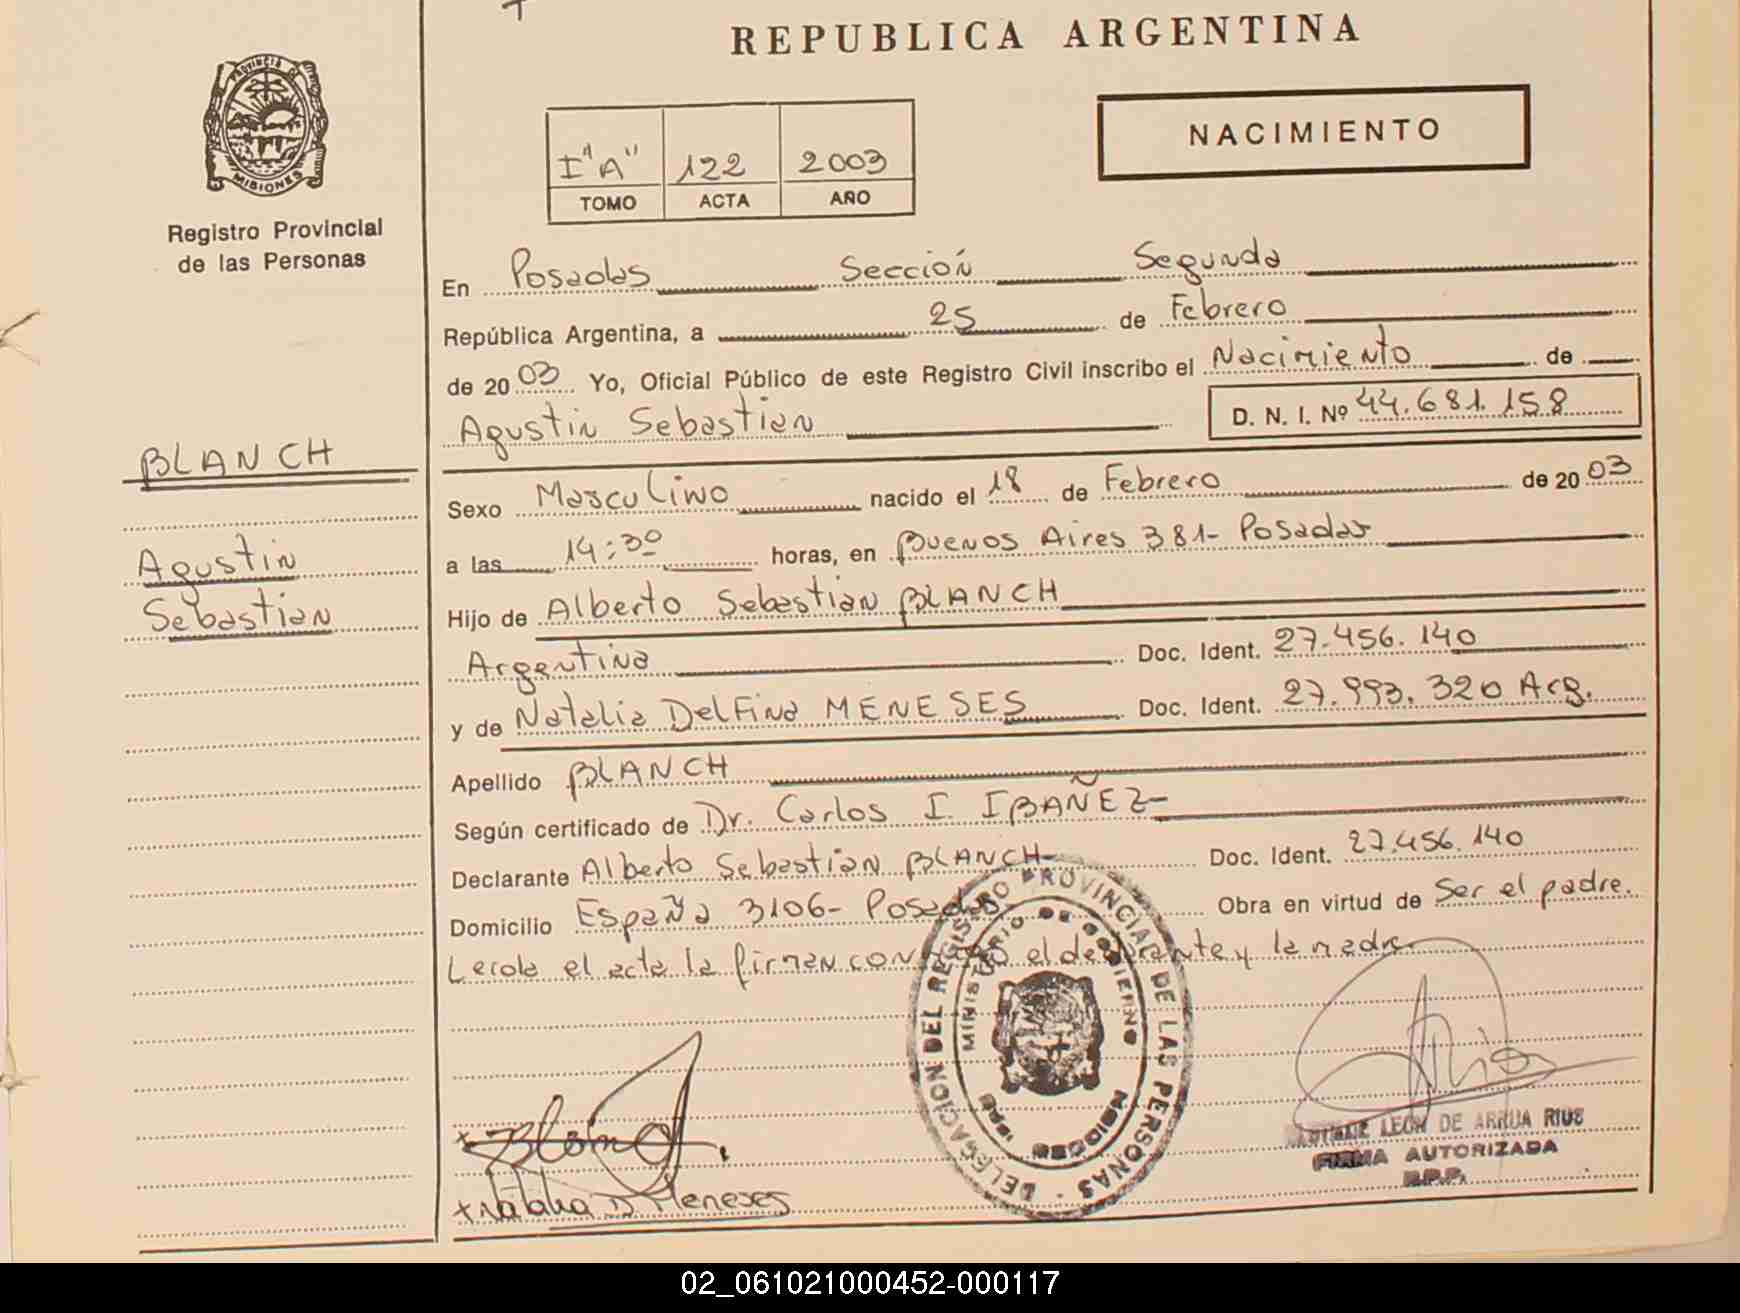 REPUBLICA ARGENTINA
PROVINCIA DE
MISIONES
Registro Provincial
de las Personas
I "A" 122 2003
TOMO ACTA AÑO
NACIMIENTO
En Posadas Sección Segunda
República Argentina, a 25 de Febrero
de 2003 Yo, Oficial Público de este Registro Civil inscribo el Nacimiento de
Agustin Sebastian D. N. I. Nº 44.681.158
BLANCH
Agustin
Sebastian
Sexo Masculino nacido el 18 de Febrero de 2003
a las 14:30 horas, en Buenos Aires 381- Posadas
Hijo de Alberto Sebastian BLANCH
Argentina Doc. Ident. 27.456.140
y de Natalia Delfina MENESES Doc. Ident. 27.993.320 Arg.
Apellido BLANCH
Según certificado de Dr. Carlos I. IBAÑEZ-
Declarante Alberto Sebastian BLANCH- Doc. Ident. 27.456.140
Domicilio España 3106- Posadas Obra en virtud de Ser el padre.
Leida el acta la firman con el declarante y la madre.
DELEGACION DEL REGISTRO PROVINCIAL DE LAS PERSONAS
MINISTERIO DE GOBIERNO
MISIONES
x Blanch
x Natalia D Meneses
LEON DE ARRUA RIUS
FIRMA AUTORIZADA
R.P.P.
02_061021000452-000117